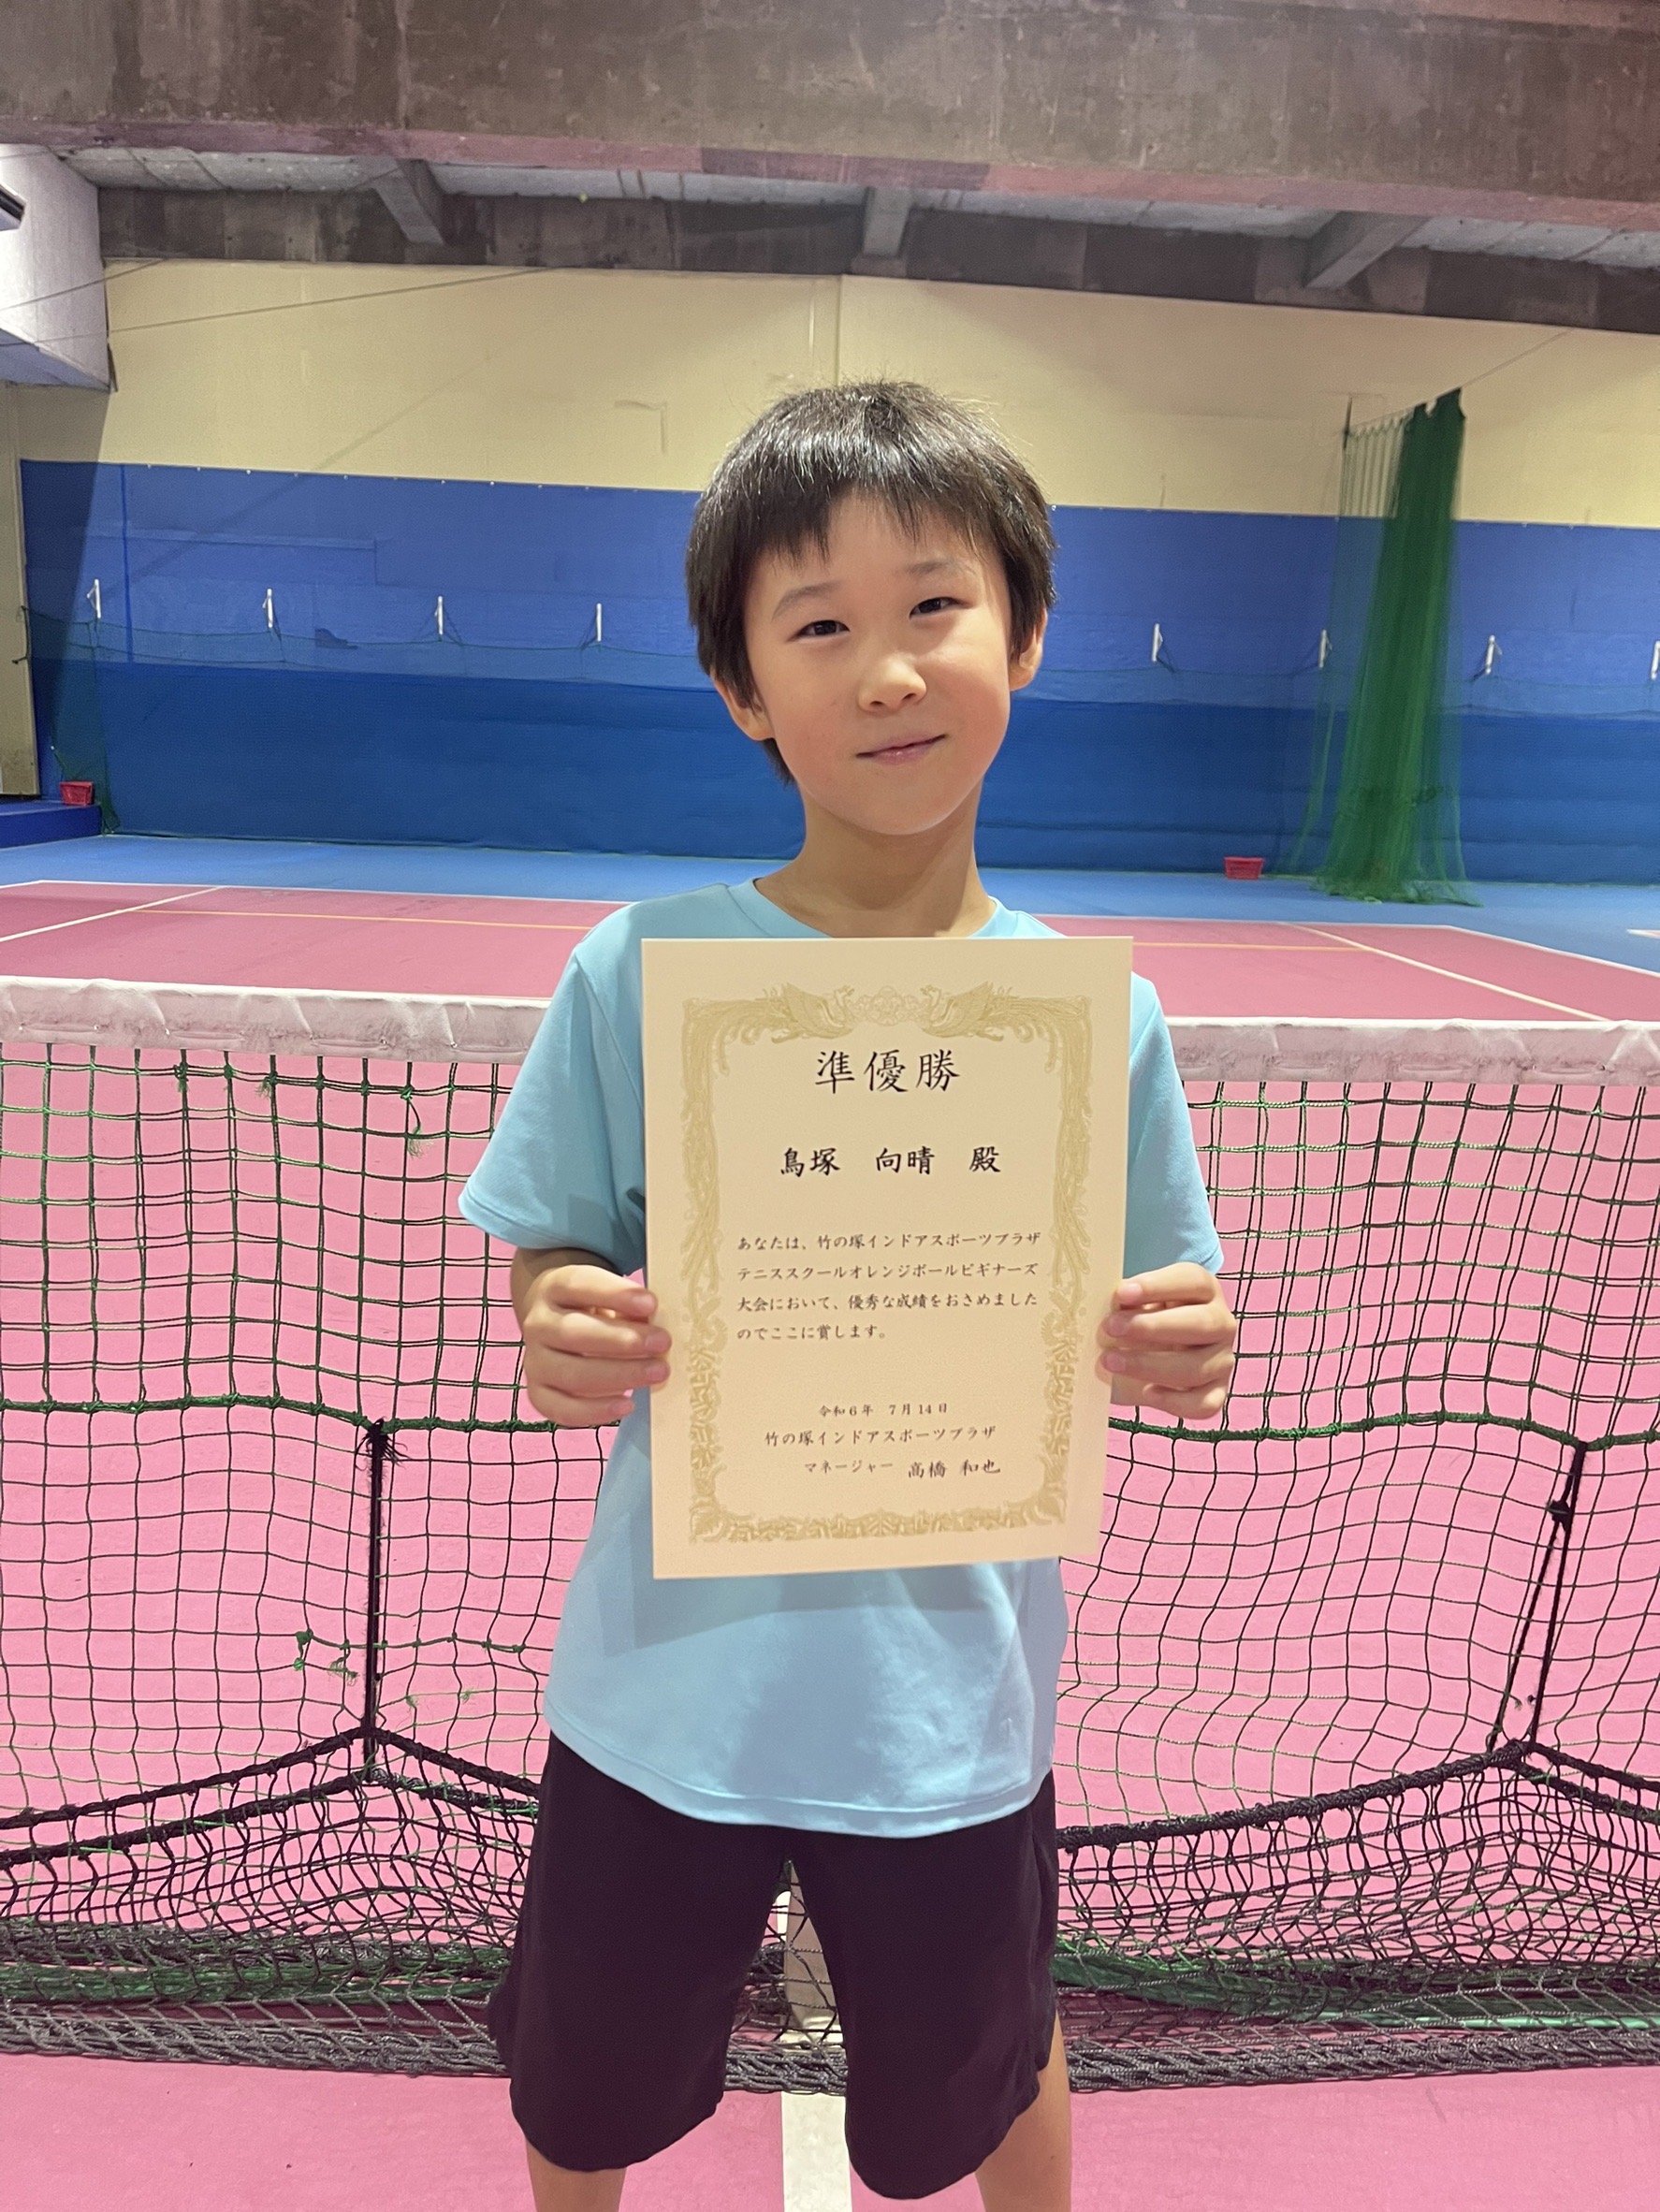 準優勝
鳥塚 向晴 殿
あなたは、竹の塚インドアスポーツプラザ
テニススクールオレンジボールビギナーズ
大会において、優秀な成績をおさめました
のでここに賞します。
令和6年 7月14日
竹の塚インドアスポーツプラザ
マネージャー 高橋 和也